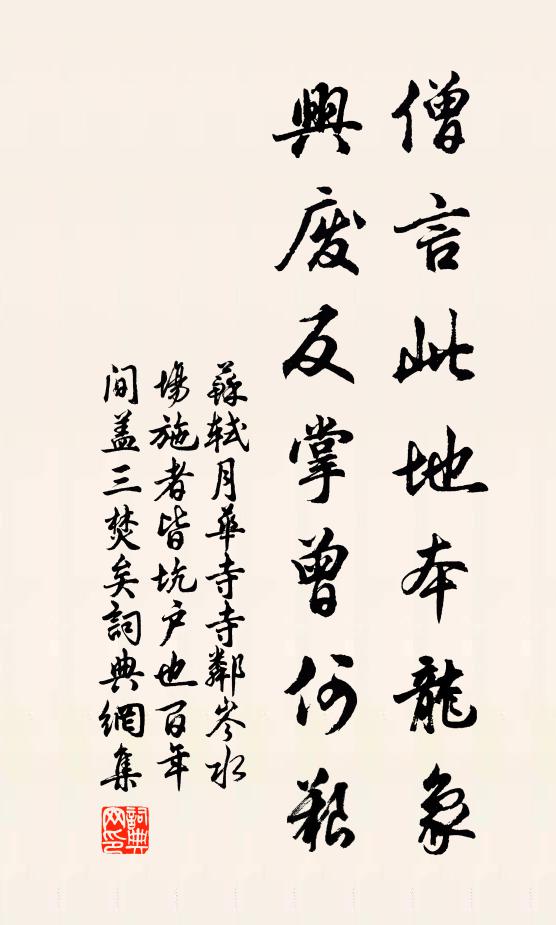 僧言此地本龍象
興廢反掌曾何艱
蘇軾月華寺寺鄰岑水
場施者皆坑戶也百年
間蓋三焚矣詞典網集
詞典
网印